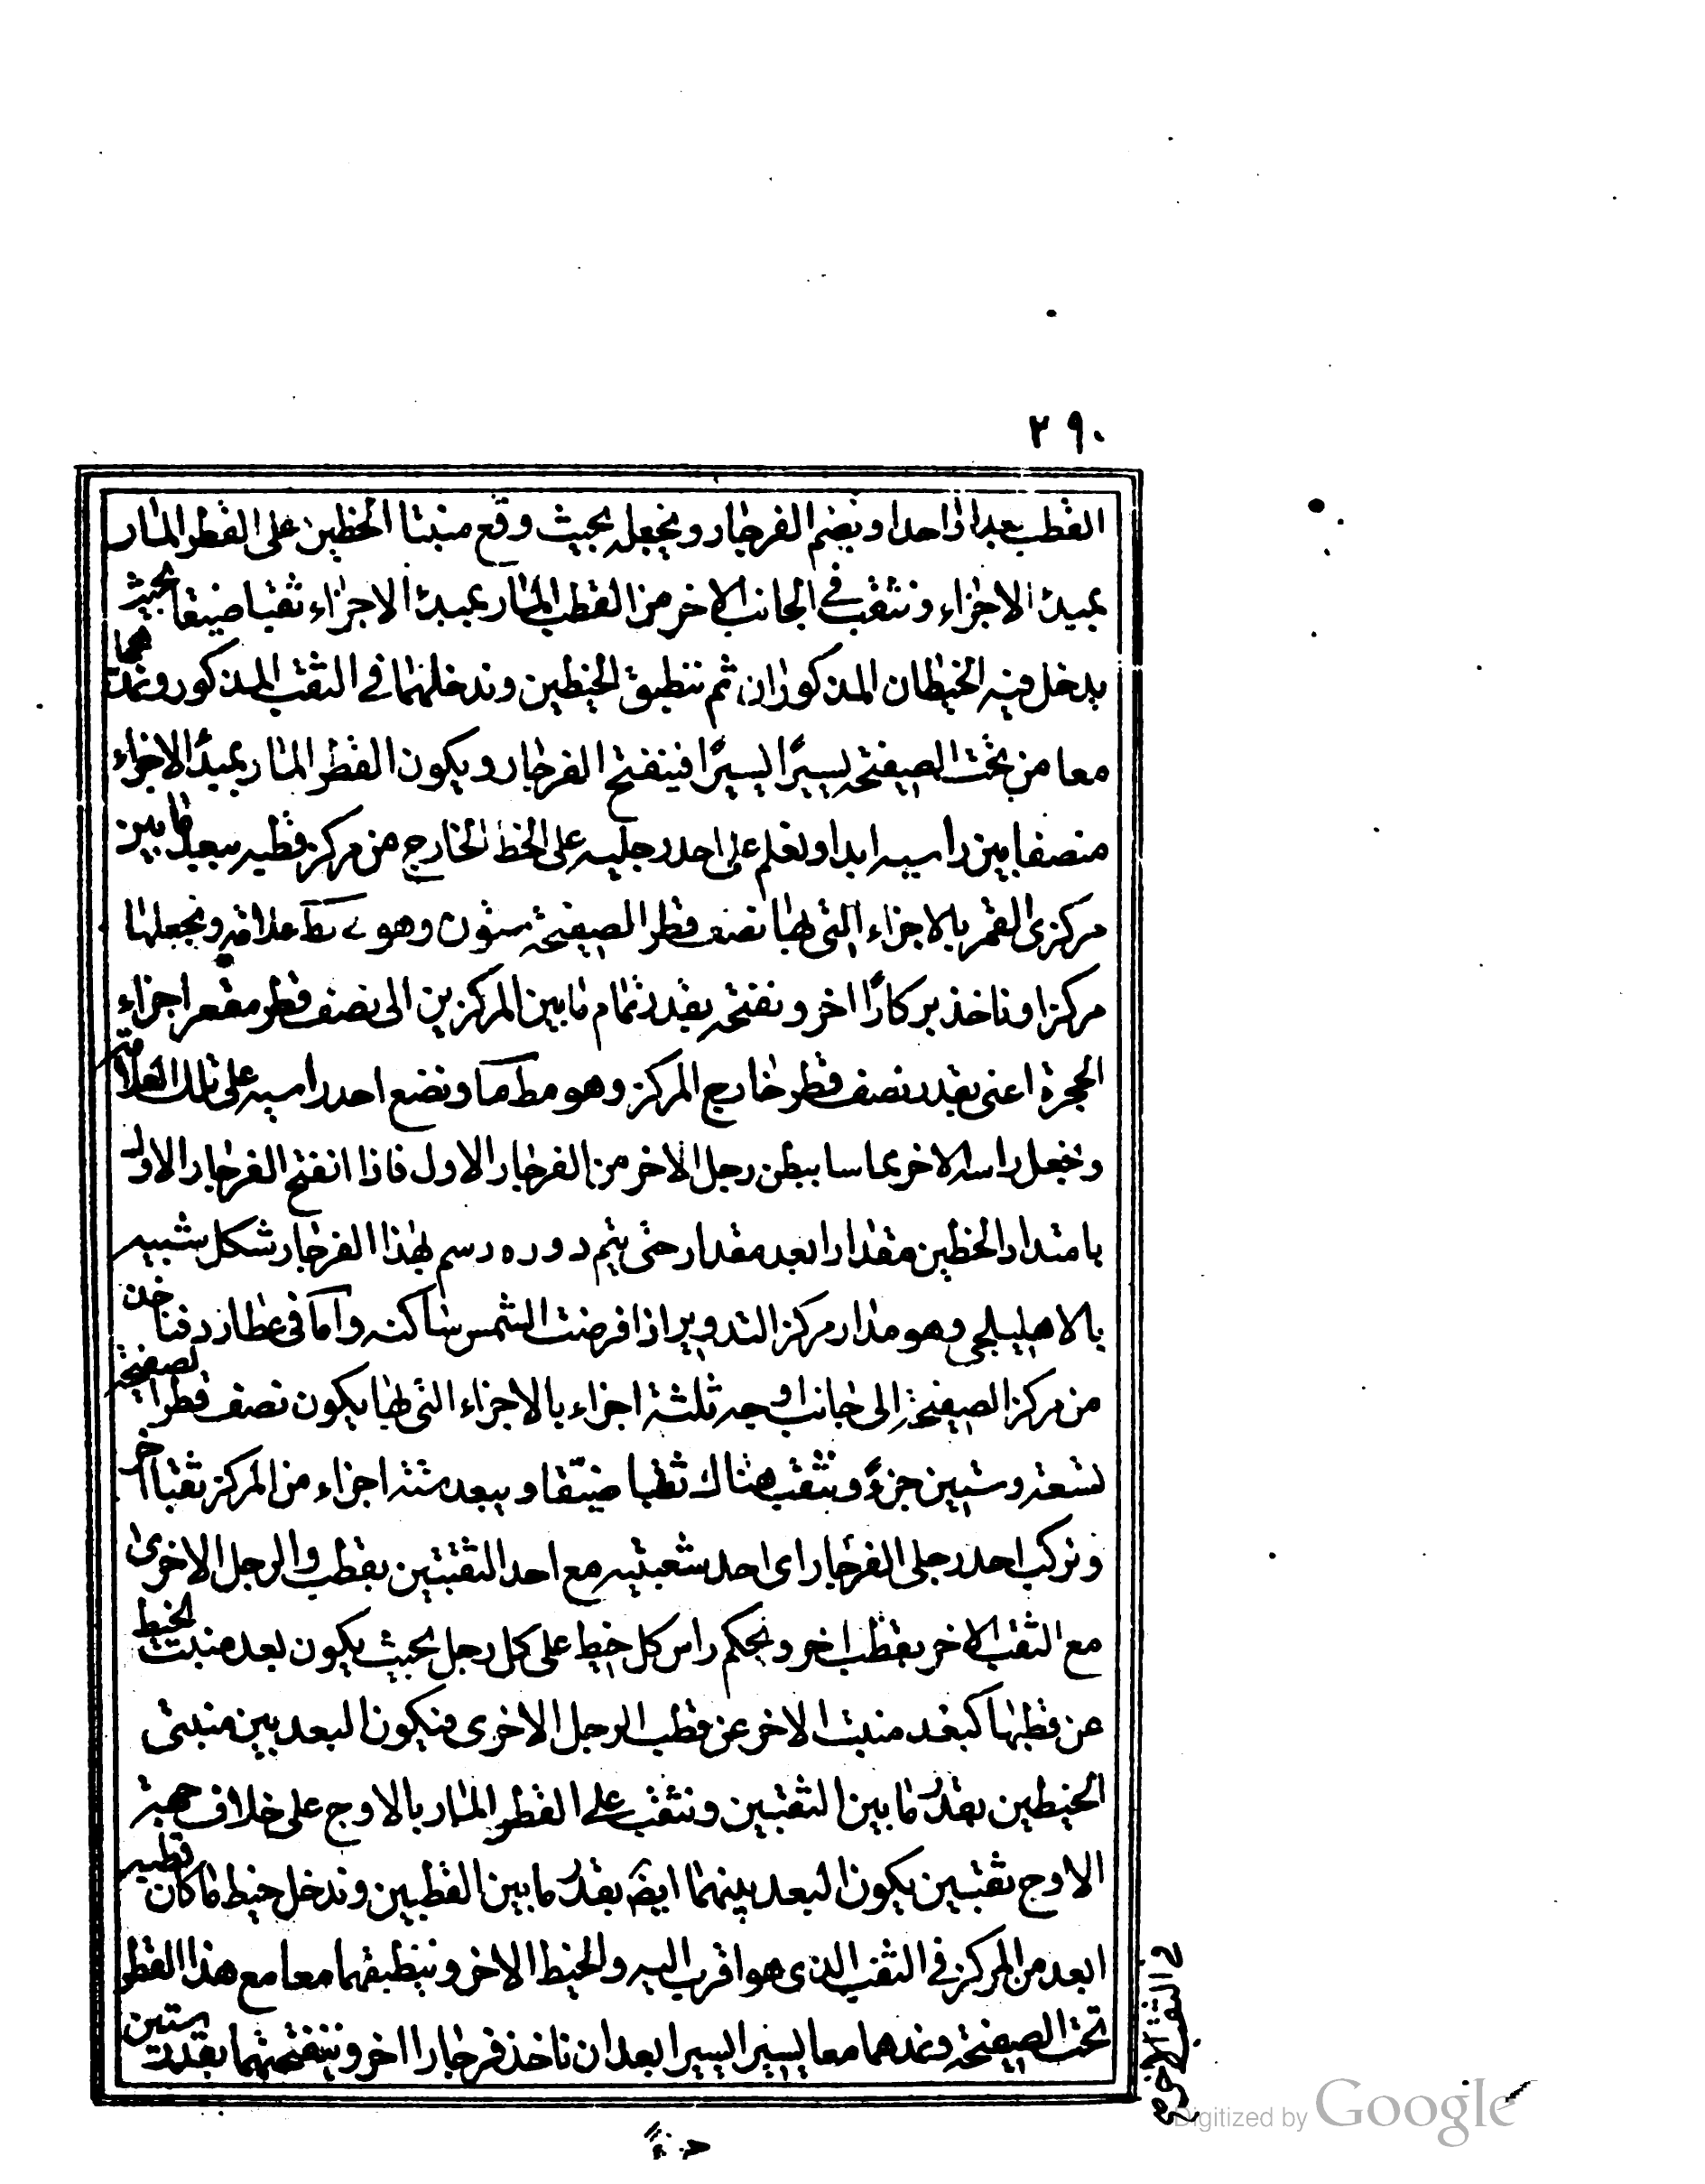 ٢٩٠
القطب بعدا واحدا ونضم الفرجار ونجعله بحيث وقع منبتا الخطين على القطر المار
بمبدء الاجزاء ونثقب في الجانب الاخر من القطب المار بمبدء الاجزاء ثقبا ضيقا بحيث
يدخل فيه الخيطان المذكوران ثم ننطبق الخيطين وندخلهما في الثقب المذكور ونمدهما
معا من تحت الصفيحة يسيرًا يسيرًا فينفتح الفرجار ويكون القطر المار بمبدء الاجزاء
منصفا بين راسيه ابدا ونعلم على احد رجليه على الخط الخارج من مركز قطبه ببعد ما بين
مركزى القمر بالاجزاء التى بها نصف قطر الصفيحة ستون وهو ى نط علامة ونجعلها
مركزا وناخذ بركارًا اخر ونفتحه بقدر تمام ما بين المركزين الى نصف قطر مقعر اجزاء
الحجرة اعنى بقدر نصف قطر خارج المركز وهو مط ما ونضع احد راسيه على تلك العلامة
ونجعل راسه الاخر مماسا ببطن رجل الاخر من الفرجار الاول فاذا انفتح الفرجار الاول
بامتداد الخطين مقدارا بعد مقدار حتى يتم دوره رسم بهذا الفرجار شكل شبيه
بالاهليلجى وهو مدار مركز التدوير اذا فرضت الشمس ساكنه واما فى عطارد فناخذ
من مركز الصفيحة الى جانب اوجه ثلثة اجزاء بالاجزاء التى بها يكون نصف قطر الصفيحة
تسعة وستين جزءً ونثقب هناك ثقبا ضيقا وببعد ستة اجزاء من المركز ثقبا اخر
ونركب احد رجلى الفرجار اى احد شعبتيه مع احد الثقبتين بقطب والرجل الاخرى
مع الثقب الاخر بقطب اخر ونحكم راس كل خيط على كل رجل بحيث يكون بعد منبت الخيط
عن قطبها كبعد منبت الاخر عن قطب الرجل الاخرى فيكون البعد بين منبتى
الخيطين بقدر ما بين الثقبين ونثقب على القطر المار بالاوج على خلاف جهة
الاوج ثقبين يكون البعد بينهما ايضً بقدر ما بين القطبين وندخل خيط ما كان قطبه
ابعد من المركز في الثقب الذى هو اقرب اليه والخيط الاخر ونطبقهما معا مع هذا القطر
في الثقب الاخر صح
تحت الصفيحة ونمدهما معا يسيرا يسيرا بعد ان ناخذ فرجارا اخر ونفتحهما بقدر ستين